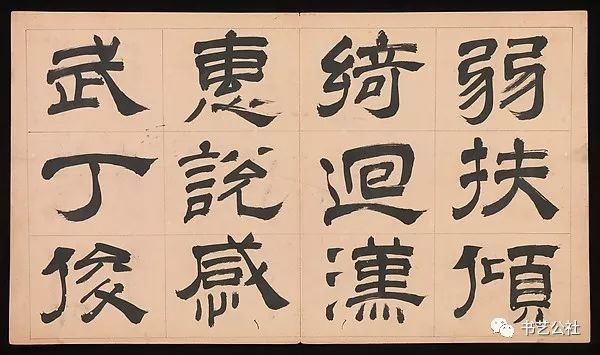 弱扶傾
綺迴漢
惠說感
武丁俊
书艺公社